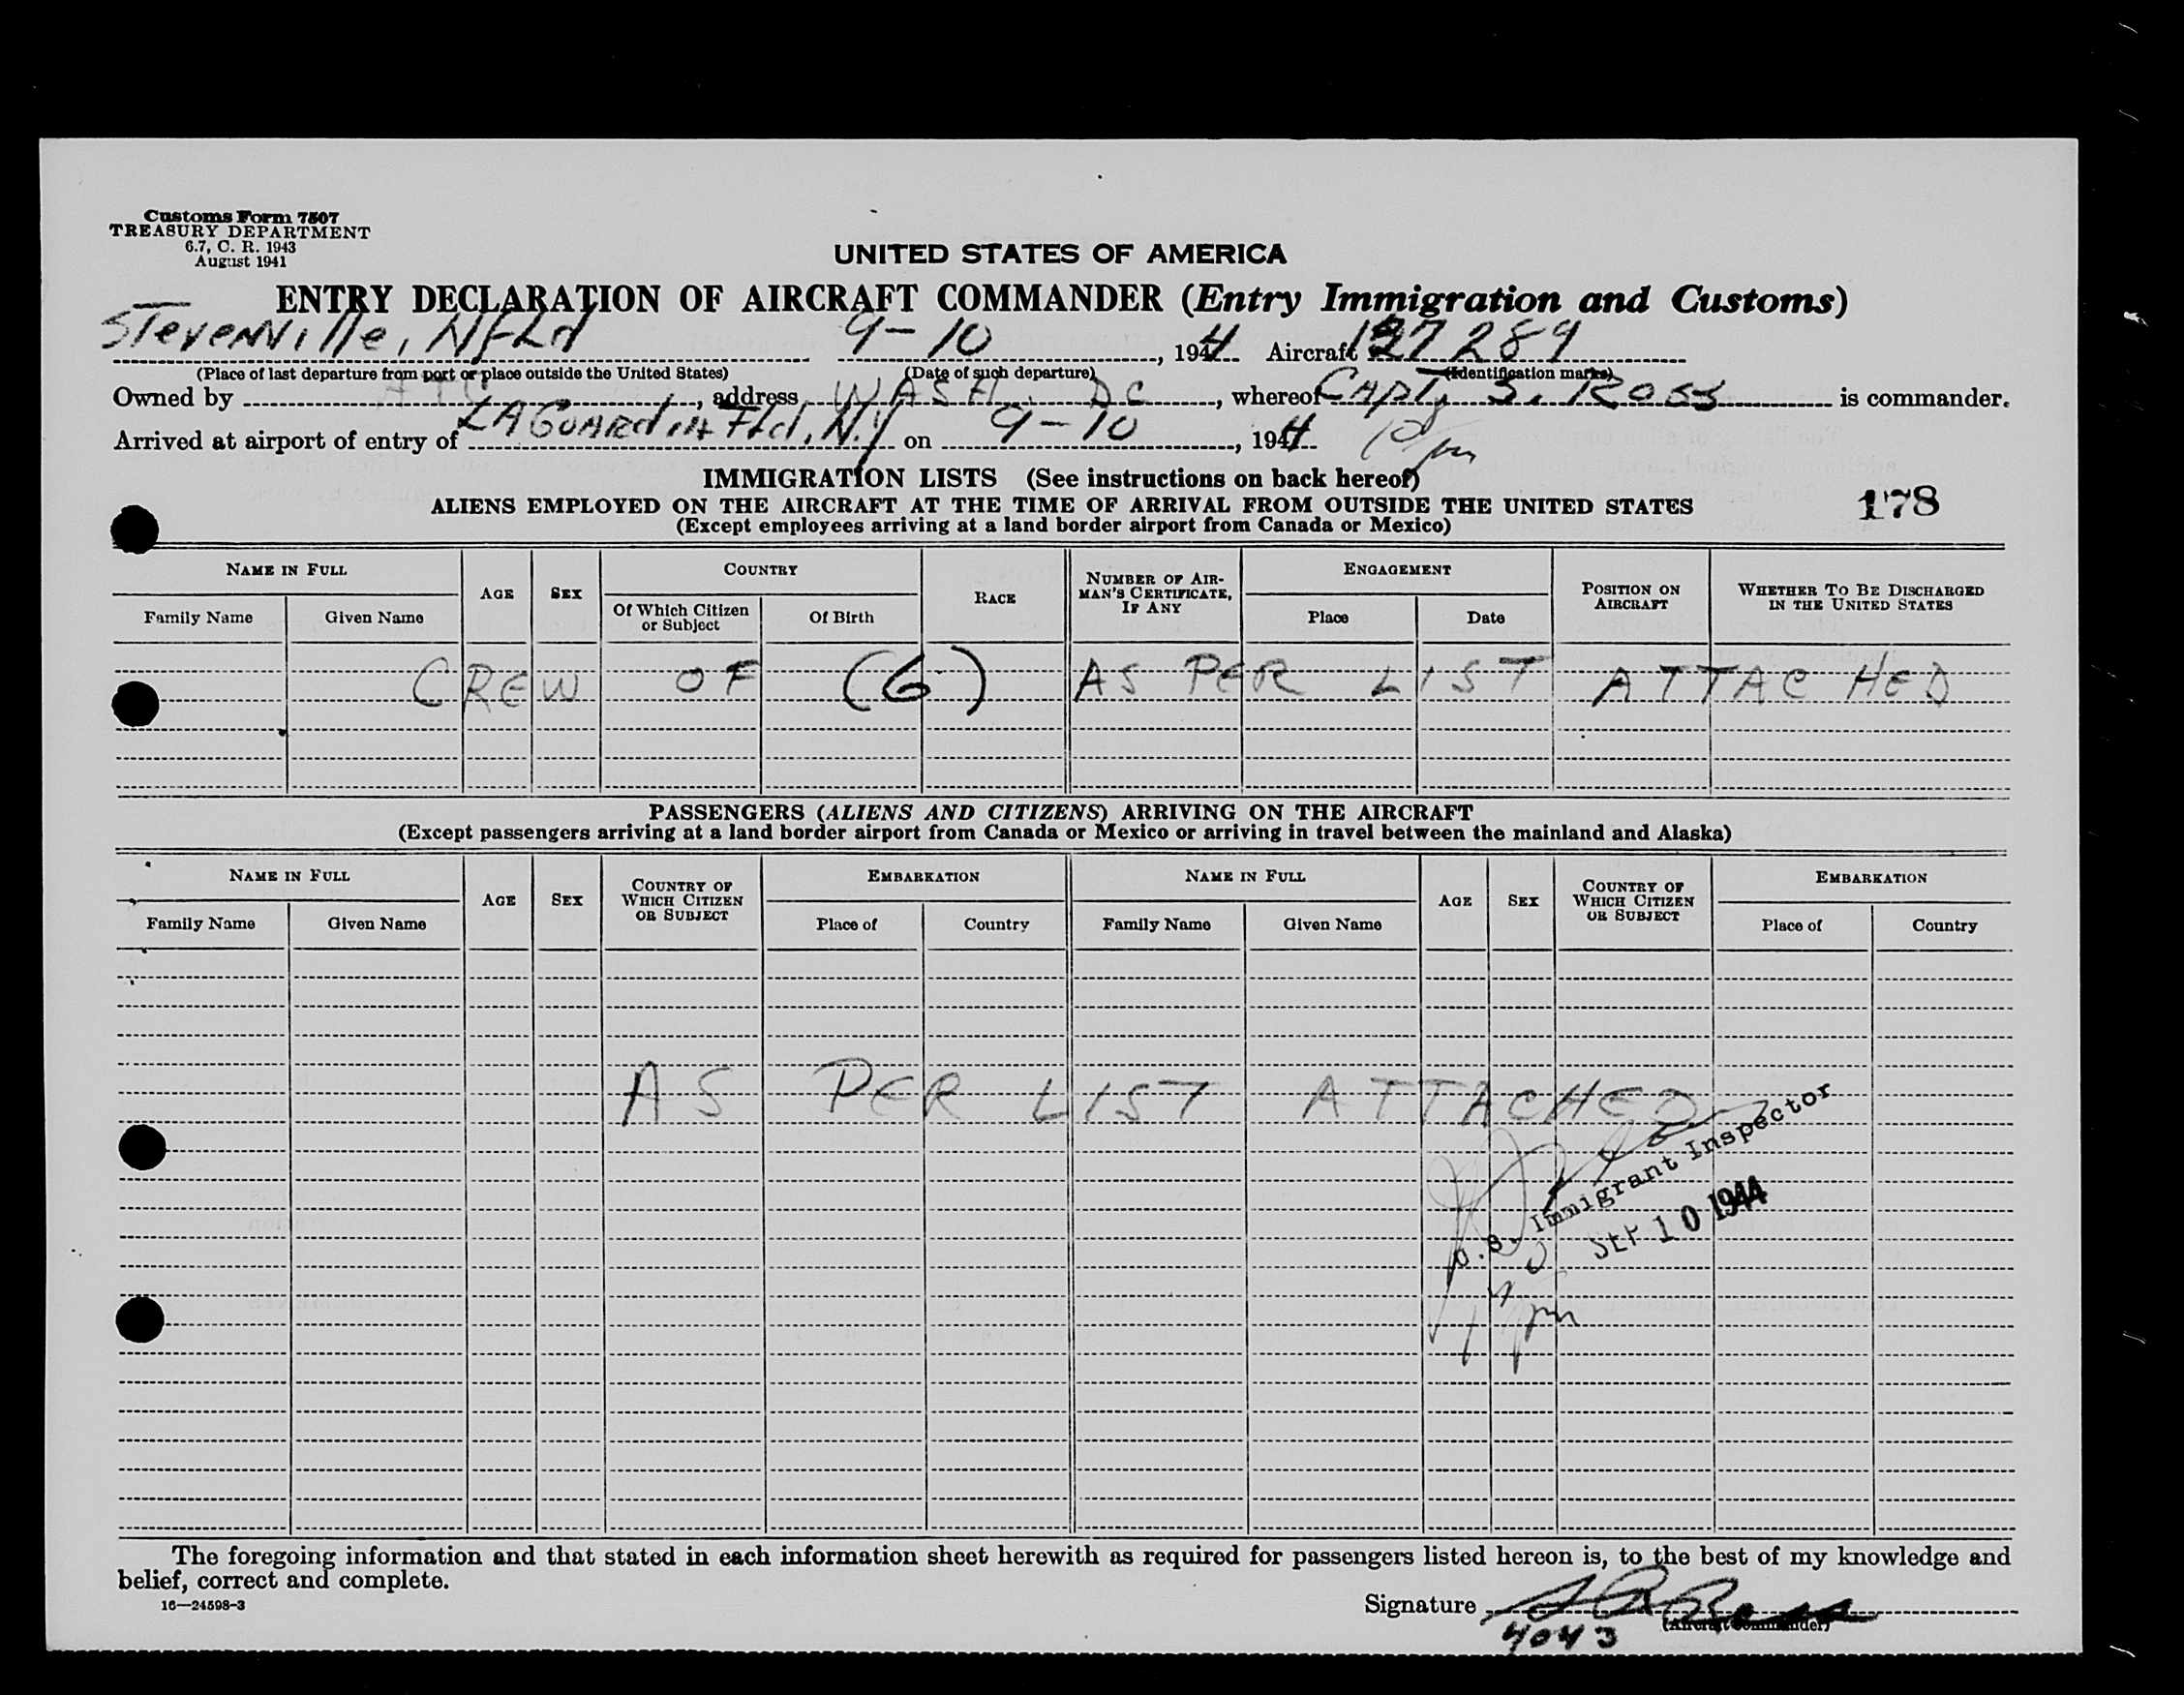 Customs Form 7507
TREASURY DEPARTMENT
6.7, C. R. 1943
August 1941
UNITED STATES OF AMERICA
ENTRY DECLARATION OF AIRCRAFT COMMANDER (Entry Immigration and Customs)
STevenville, NFLd 9-10, 1944 Aircraft 127289
(Place of last departure from port or place outside the United States) (Date of such departure) (Identification marks)
Owned by ATC, address WASH. DC, whereof CAPT, S. Ross is commander.
Arrived at airport of entry of LAGUARdiA FLd, N.Y on 9-10, 1944 10 pm
IMMIGRATION LISTS (See instructions on back hereof)
ALIENS EMPLOYED ON THE AIRCRAFT AT THE TIME OF ARRIVAL FROM OUTSIDE THE UNITED STATES 178
(Except employees arriving at a land border airport from Canada or Mexico)
NAME IN FULL AGE SEX COUNTRY RACE NUMBER OF AIRMAN'S CERTIFICATE, IF ANY ENGAGEMENT POSITION ON AIRCRAFT WHETHER TO BE DISCHARGED IN THE UNITED STATES
Family Name Given Name Of Which Citizen or Subject Of Birth Place Date
CREW OF (6) AS PER LIST ATTACHED
PASSENGERS (ALIENS AND CITIZENS) ARRIVING ON THE AIRCRAFT
(Except passengers arriving at a land border airport from Canada or Mexico or arriving in travel between the mainland and Alaska)
NAME IN FULL AGE SEX COUNTRY OF WHICH CITIZEN OR SUBJECT EMBARKATION NAME IN FULL AGE SEX COUNTRY OF WHICH CITIZEN OR SUBJECT EMBARKATION
Family Name Given Name Place of Country Family Name Given Name Place of Country
AS PER LIST ATTACHED
U.S. Immigrant Inspector
SEP 10 1944
pm
The foregoing information and that stated in each information sheet herewith as required for passengers listed hereon is, to the best of my knowledge and
belief, correct and complete.
16—24598-3
Signature
(Aircraft Commander)
4043